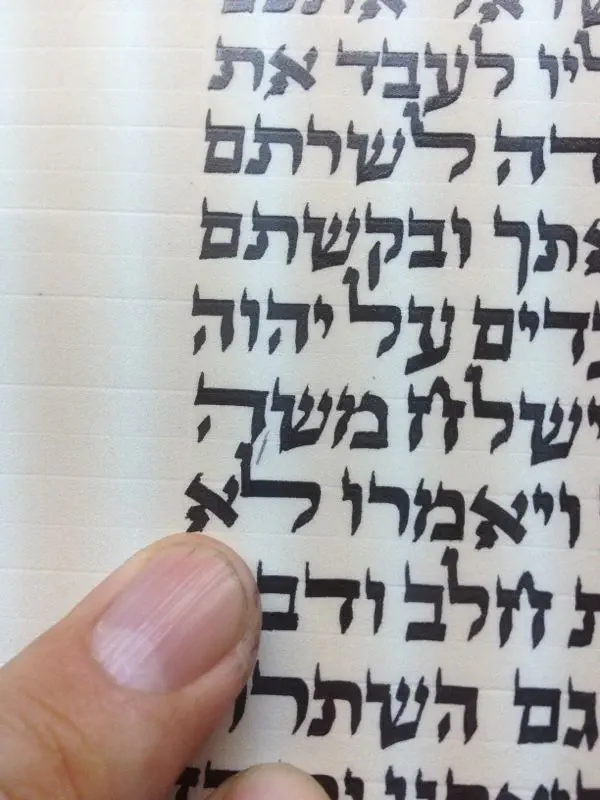 אתכם
ליו לעבד את
דה לשרתם
אתך ובקשתם
עדים על יהוה
ישלח משה
ויאמרו לא
ת חלב ודב
גם השתרר